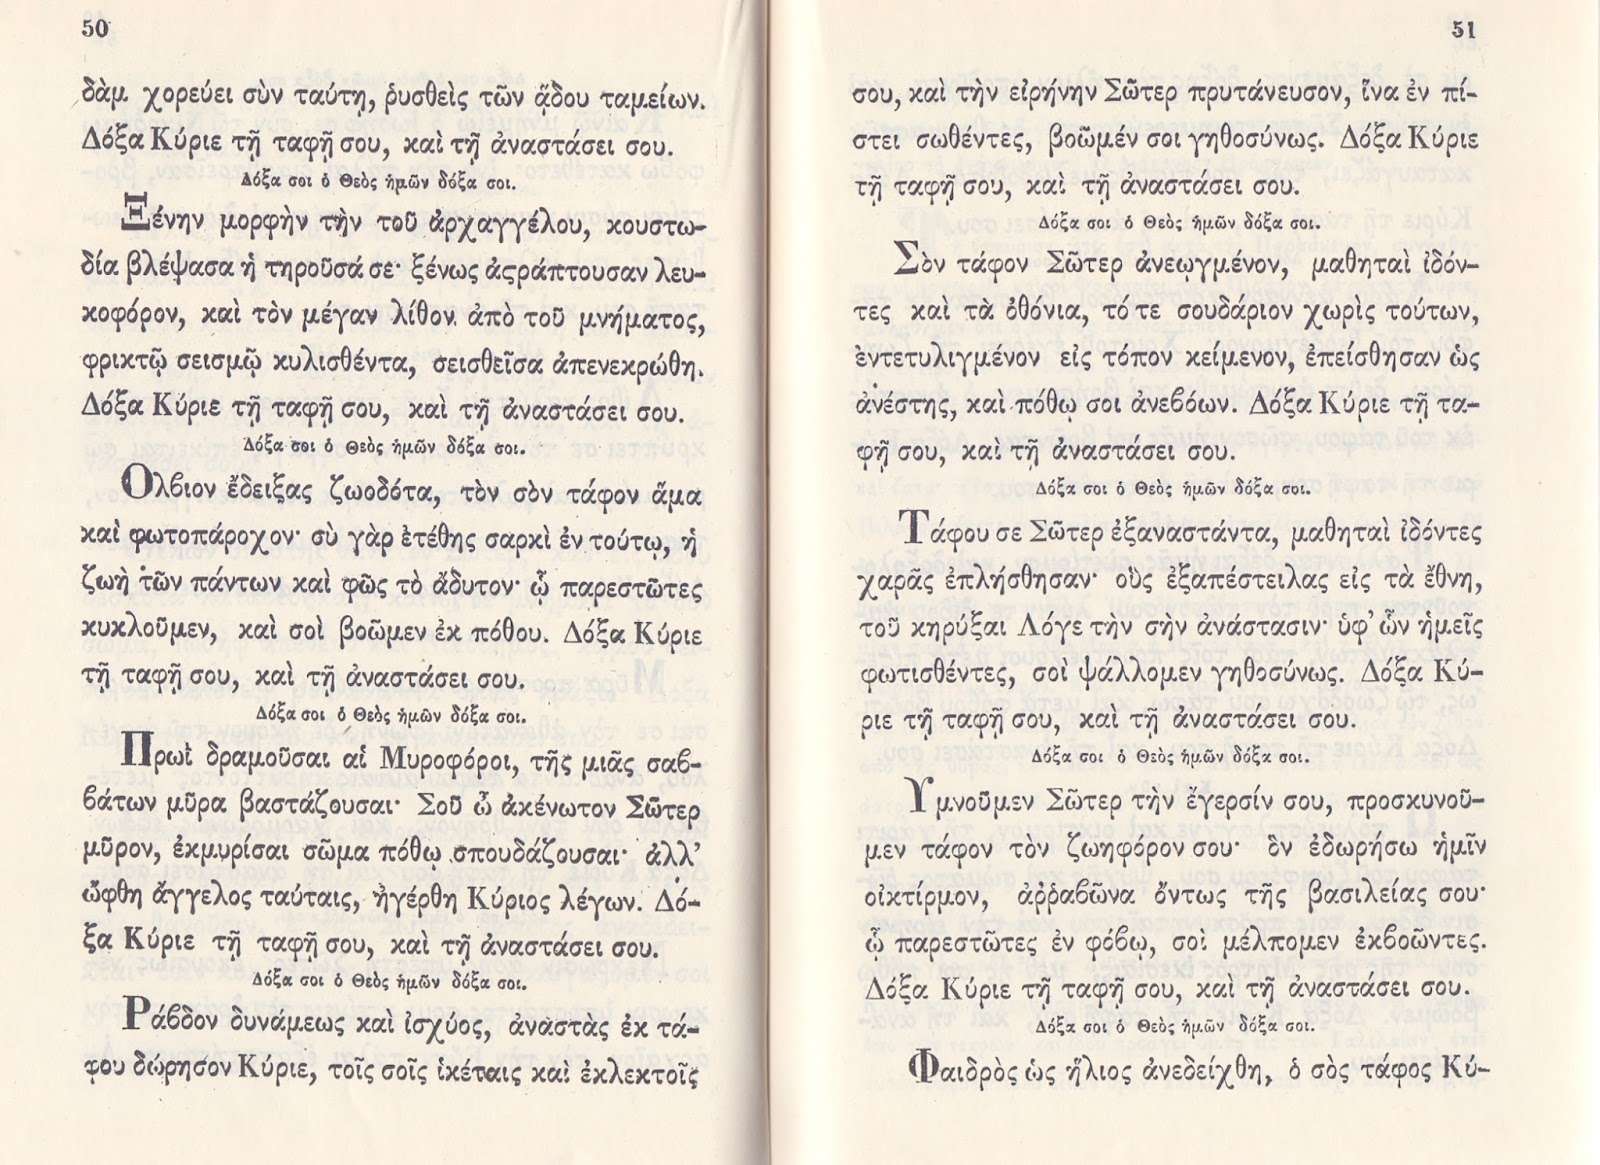 50
δὰμ χορεύει σὺν ταύτῃ, ῥυσθεὶς τῶν ᾅδου ταμείων.
Δόξα Κύριε τῇ ταφῇ σου, καὶ τῇ ἀναστάσει σου.
Δόξα σοι ὁ Θεὸς ἡμῶν δόξα σοι.
Ξένην μορφὴν τὴν τοῦ ἀρχαγγέλου, κουστω-
δία βλέψασα ἡ τηροῦσά σε· ξένως ἀςράπτουσαν λευ-
κοφόρον, καὶ τὸν μέγαν λίθον ἀπὸ τοῦ μνήματος,
φρικτῷ σεισμῷ κυλισθέντα, σεισθεῖσα ἀπενεκρώθη.
Δόξα Κύριε τῇ ταφῇ σου, καὶ τῇ ἀναστάσει σου.
Δόξα σοι ὁ Θεὸς ἡμῶν δόξα σοι.
Ολβιον ἔδειξας ζωοδότα, τὸν σὸν τάφον ἅμα
καὶ φωτοπάροχον· σὺ γὰρ ἐτέθης σαρκὶ ἐν τούτῳ, ἡ
ζωὴ τῶν πάντων καὶ φῶς τὸ ἄδυτον· ᾧ παρεστῶτες
κυκλοῦμεν, καὶ σοὶ βοῶμεν ἐκ πόθου. Δόξα Κύριε
τῇ ταφῇ σου, καὶ τῇ ἀναστάσει σου.
Δόξα σοι ὁ Θεὸς ἡμῶν δόξα σοι.
Πρωῒ δραμοῦσαι αἱ Μυροφόροι, τῆς μιᾶς σαβ-
βάτων μῦρα βαστάζουσαι· Σοῦ ὦ ἀκένωτον Σῶτερ
μῦρον, ἐκμυρίσαι σῶμα πόθῳ σπουδάζουσαι· ἀλλ'
ὤφθη ἄγγελος ταύταις, ἠγέρθη Κύριος λέγων. Δό-
ξα Κύριε τῇ ταφῇ σου, καὶ τῇ ἀναστάσει σου.
Δόξα σοι ὁ Θεὸς ἡμῶν δόξα σοι.
Ράβδον δυνάμεως καὶ ἰσχύος, ἀναστὰς ἐκ τά-
φου δώρησον Κύριε, τοῖς σοῖς ἱκέταις καὶ ἐκλεκτοῖς
51
σου, καὶ τὴν εἰρήνην Σῶτερ πρυτάνευσον, ἵνα ἐν πί-
στει σωθέντες, βοῶμέν σοι γηθοσύνως. Δόξα Κύριε
τῇ ταφῇ σου, καὶ τῇ ἀναστάσει σου.
Δόξα σοι ὁ Θεὸς ἡμῶν δόξα σοι.
Σὸν τάφον Σῶτερ ἀνεῳγμένον, μαθηταὶ ἰδόν-
τες καὶ τὰ ὀθόνια, τό τε σουδάριον χωρὶς τούτων,
ἐντετυλιγμένον εἰς τόπον κείμενον, ἐπείσθησαν ὡς
ἀνέστης, καὶ πόθῳ σοι ἀνεβόων. Δόξα Κύριε τῇ τα-
φῇ σου, καὶ τῇ ἀναστάσει σου.
Δόξα σοι ὁ Θεὸς ἡμῶν δόξα σοι.
Τάφου σε Σῶτερ ἐξαναστάντα, μαθηταὶ ἰδόντες
χαρᾶς ἐπλήσθησαν· οὓς ἐξαπέστειλας εἰς τὰ ἔθνη,
τοῦ κηρύξαι Λόγε τὴν σὴν ἀνάστασιν· ὑφ' ὧν ἡμεῖς
φωτισθέντες, σοὶ ψάλλομεν γηθοσύνως. Δόξα Κύ-
ριε τῇ ταφῇ σου, καὶ τῇ ἀναστάσει σου.
Δόξα σοι ὁ Θεὸς ἡμῶν δόξα σοι.
Υμνοῦμεν Σῶτερ τὴν ἔγερσίν σου, προσκυνοῦ-
μεν τάφον τὸν ζωηφόρον σου· ὃν ἐδωρήσω ἡμῖν
οἰκτίρμον, ἀῤῥαβῶνα ὄντως τῆς βασιλείας σου·
ᾧ παρεστῶτες ἐν φόβῳ, σοὶ μέλπομεν ἐκβοῶντες.
Δόξα Κύριε τῇ ταφῇ σου, καὶ τῇ ἀναστάσει σου.
Δόξα σοι ὁ Θεὸς ἡμῶν δόξα σοι.
Φαιδρὸς ὡς ἥλιος ἀνεδείχθη, ὁ σὸς τάφος Κύ-